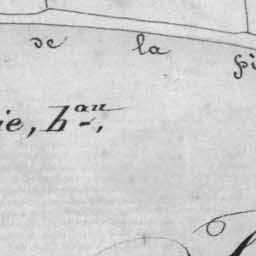 de la pi
ie, h^au,